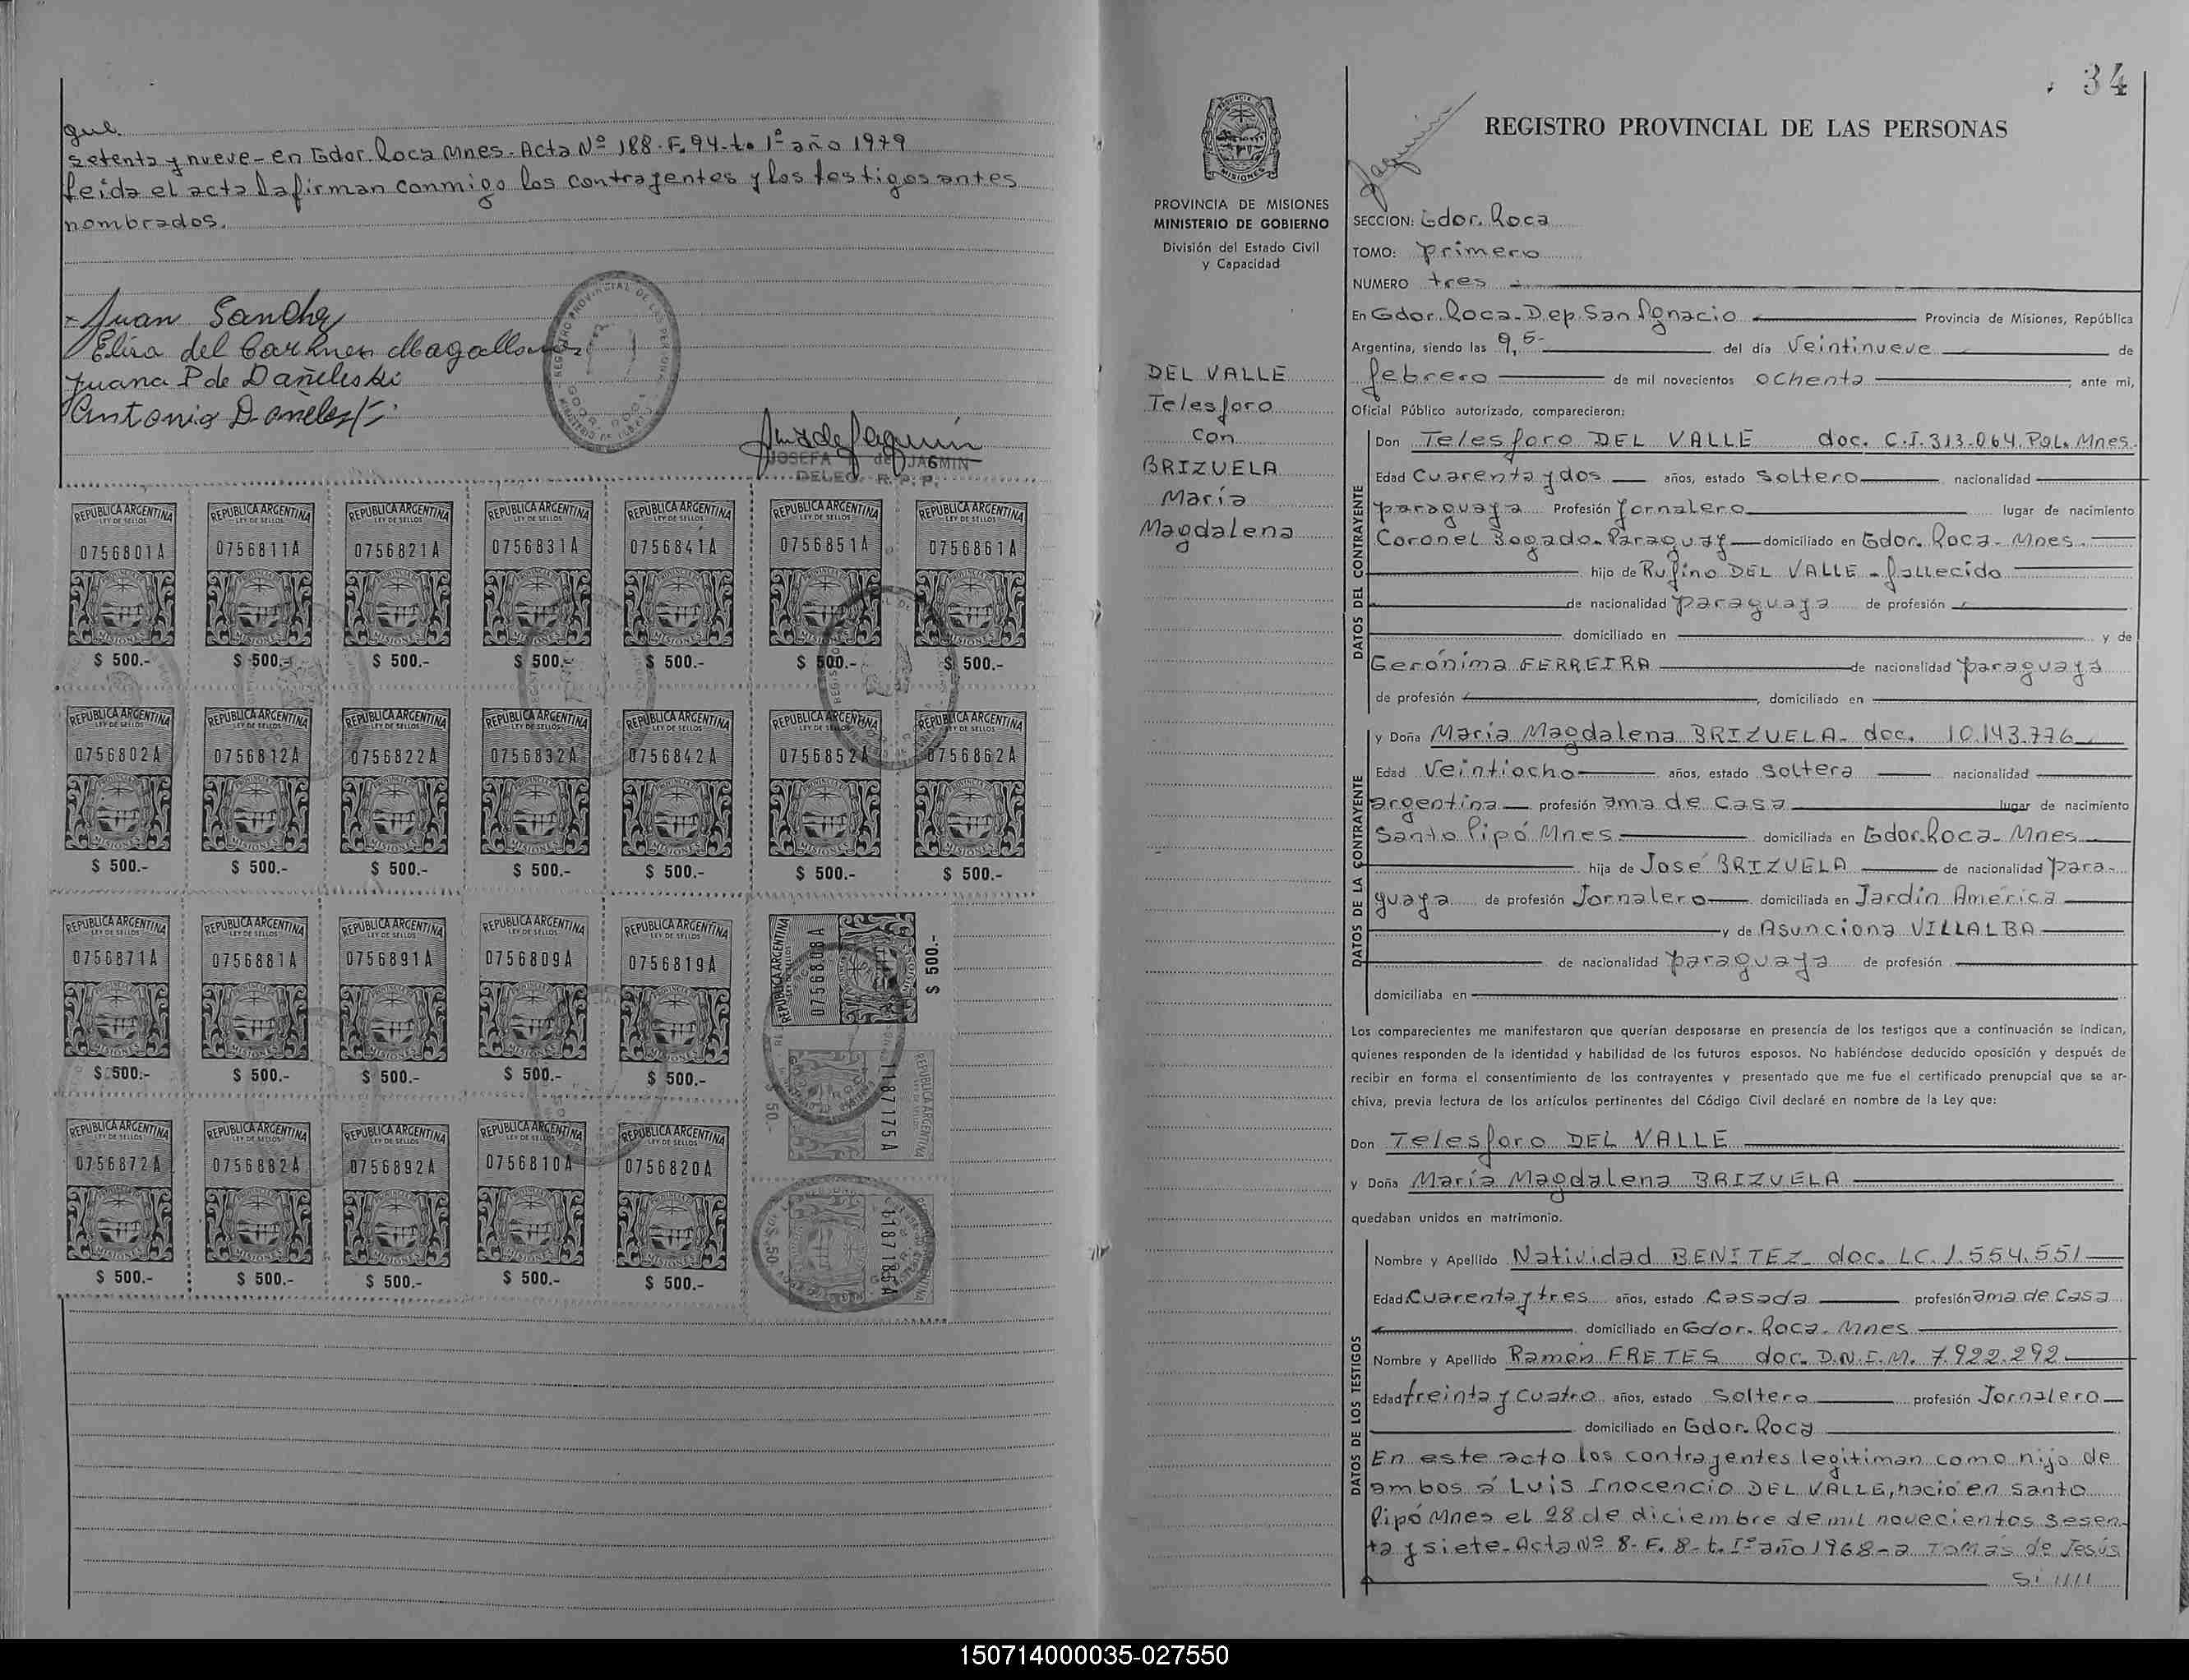 que
setenta y nueve - en Gdor. Roca Mnes. Acta Nº 188. F. 94 - to 1º año 1979
leida el acta la firman conmigo los contrayentes y los testigos antes
nombrados.
Juan Sanchez
Elisa del Carmen Magallanes
Juana P de Dañeleski
Antonio Dañeleski
REGISTRO PROVINCIAL DE LAS PERSONAS
JOSEFA de JAGMIN
DELEG. R. P. P.
REPUBLICA ARGENTINA REPUBLICA ARGENTINA REPUBLICA ARGENTINA REPUBLICA ARGENTINA REPUBLICA ARGENTINA REPUBLICA ARGENTINA REPUBLICA ARGENTINA
LEY DE SELLOS LEY DE SELLOS LEY DE SELLOS LEY DE SELLOS LEY DE SELLOS LEY DE SELLOS LEY DE SELLOS
0756801A 0756811A 0756821A 0756831A 0756841A 0756851A 0756861A
MISIONES MISIONES MISIONES MISIONES MISIONES MISIONES MISIONES
$ 500.- $ 500.- $ 500.- $ 500.- $ 500.- $ 500.- $ 500.-
REPUBLICA ARGENTINA REPUBLICA ARGENTINA REPUBLICA ARGENTINA REPUBLICA ARGENTINA REPUBLICA ARGENTINA REPUBLICA ARGENTINA REPUBLICA ARGENTINA
LEY DE SELLOS LEY DE SELLOS LEY DE SELLOS LEY DE SELLOS LEY DE SELLOS LEY DE SELLOS LEY DE SELLOS
0756802A 0756812A 0756822A 0756832A 0756842A 0756852A 0756862A
MISIONES MISIONES MISIONES MISIONES MISIONES MISIONES MISIONES
$ 500.- $ 500.- $ 500.- $ 500.- $ 500.- $ 500.- $ 500.-
REPUBLICA ARGENTINA REPUBLICA ARGENTINA REPUBLICA ARGENTINA REPUBLICA ARGENTINA REPUBLICA ARGENTINA
LEY DE SELLOS LEY DE SELLOS LEY DE SELLOS LEY DE SELLOS LEY DE SELLOS
0756871A 0756881A 0756891A 0756809A 0756819A
MISIONES MISIONES MISIONES MISIONES MISIONES
$ 500.- $ 500.- $ 500.- $ 500.- $ 500.-
REPUBLICA ARGENTINA
0756808A
$ 500.-
REPUBLICA ARGENTINA
1187175A
$ 50.-
REPUBLICA ARGENTINA REPUBLICA ARGENTINA REPUBLICA ARGENTINA REPUBLICA ARGENTINA REPUBLICA ARGENTINA
LEY DE SELLOS LEY DE SELLOS LEY DE SELLOS LEY DE SELLOS LEY DE SELLOS
0756872A 0756882A 0756892A 0756810A 0756820A
MISIONES MISIONES MISIONES MISIONES MISIONES
$ 500.- $ 500.- $ 500.- $ 500.- $ 500.-
1187185A
$ 50
34
Jagmin
PROVINCIA DE MISIONES
MINISTERIO DE GOBIERNO
División del Estado Civil
y Capacidad
DEL VALLE
Telesforo
con
BRIZUELA
María
Magdalena
REGISTRO PROVINCIAL DE LAS PERSONAS
SECCION: Gdor. Roca
TOMO: primero
NUMERO tres
En Gdor. Roca. Dep. San Ignacio Provincia de Misiones, República
Argentina, siendo las 9,5- del día veintinueve de
febrero de mil novecientos ochenta ante mi,
Oficial Público autorizado, comparecieron:
DATOS DEL CONTRAYENTE
Don Telesforo DEL VALLE doc. C.I. 313.064. Pol. Mnes.
Edad cuarenta y dos años, estado soltero nacionalidad
paraguaya Profesión jornalero lugar de nacimiento
Coronel Bogado. Paraguay domiciliado en Gdor. Roca - Mnes.
hijo de Rufino DEL VALLE - fallecido
de nacionalidad paraguaya de profesión
domiciliado en y de
Gerónima FERREIRA de nacionalidad paraguaya
de profesión , domiciliado en
DATOS DE LA CONTRAYENTE
y Doña María Magdalena BRIZUELA - doc. 10.143.776
Edad veintiocho años, estado soltera nacionalidad
argentina profesión ama de casa lugar de nacimiento
Santo Pipó Mnes domiciliada en Gdor. Roca - Mnes
hija de José BRIZUELA de nacionalidad para-
guaya de profesión Jornalero domiciliada en Jardín América
y de Asunciona VILLALBA
de nacionalidad paraguaya de profesión
domiciliaba en
Los comparecientes me manifestaron que querían desposarse en presencia de los testigos que a continuación se indican,
quienes responden de la identidad y habilidad de los futuros esposos. No habiéndose deducido oposición y después de
recibir en forma el consentimiento de los contrayentes y presentado que me fue el certificado prenupcial que se ar-
chiva, previa lectura de los artículos pertinentes del Código Civil declaré en nombre de la Ley que:
Don Telesforo DEL VALLE
y Doña María Magdalena BRIZUELA
quedaban unidos en matrimonio.
DATOS DE LOS TESTIGOS
Nombre y Apellido Natividad BENITEZ - doc. LC. 1.554.551
Edad cuarenta y tres años, estado casada profesión ama de casa
domiciliado en Gdor. Roca. Mnes
Nombre y Apellido Ramon FRETES doc. D.N.I.M. 7.922.292
Edad treinta y cuatro años, estado soltero profesión Jornalero
domiciliado en Gdor. Roca
En este acto los contrayentes legitiman como hijo de
ambos á Luis Inocencio DEL VALLE, nació en Santo
Pipó Mnes el 28 de diciembre de mil novecientos sesen-
ta y siete. Acta Nº 8 - F. 8 - t. Iº año 1968 - a Tomás de Jesús
Si ////
150714000035-027550